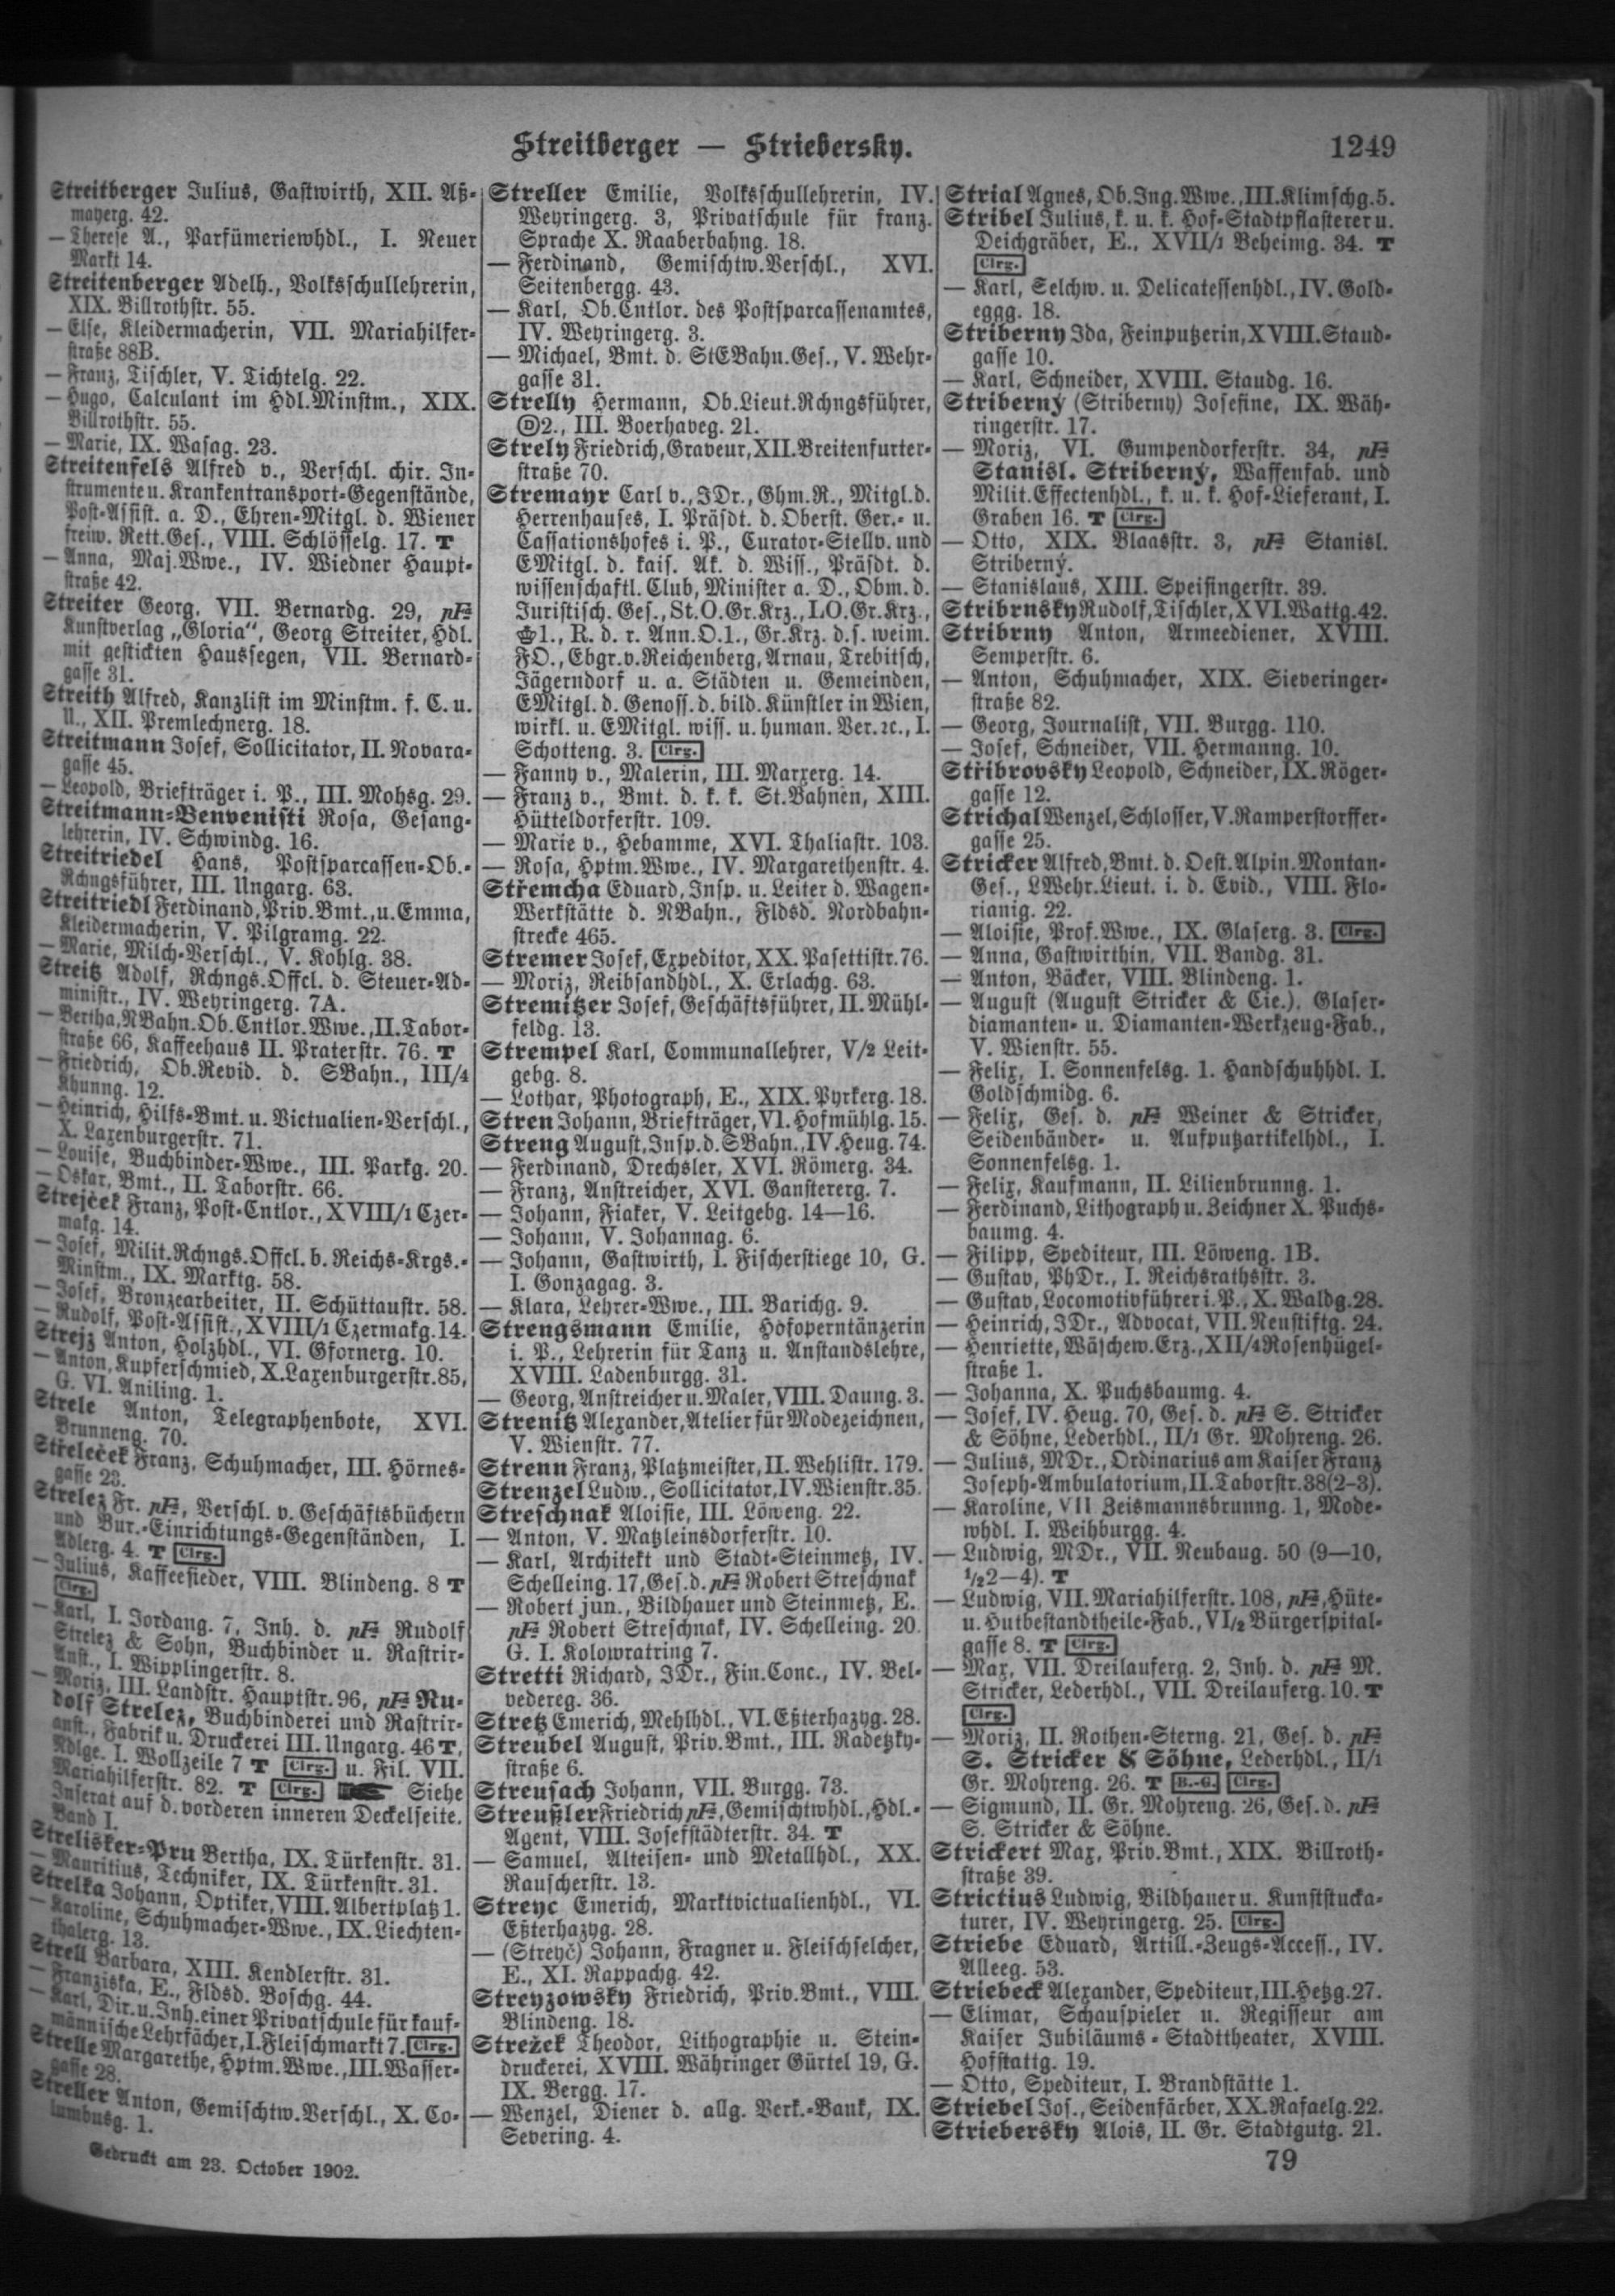 Streitberger — Striebersky.
1249
Streitberger Julius, Gastwirth, XII. Aß-
mayerg. 42.
— Therese A., Parfümeriewhdl., I. Neuer
Markt 14.
Streitenberger Adelh., Volksschullehrerin,
XIX. Billrothstr. 55.
— Else, Kleidermacherin, VII. Mariahilfer-
straße 88B.
— Franz, Tischler, V. Tichtelg. 22.
— Hugo, Calculant im Hdl.Minstm., XIX.
Billrothstr. 55.
— Marie, IX. Wasag. 23.
Streitenfels Alfred v., Verschl. chir. In-
strumente u. Krankentransport-Gegenstände,
Post-Assist. a. D., Ehren-Mitgl. d. Wiener
freiw. Rett.Ges., VIII. Schlösselg. 17. T
— Anna, Maj.Wwe., IV. Wiedner Haupt-
straße 42.
Streiter Georg, VII. Bernardg. 29, pF
Kunstverlag „Gloria“, Georg Streiter, Hdl.
mit gestickten Haussegen, VII. Bernard-
gasse 31.
Streith Alfred, Kanzlist im Minstm. f. C. u.
U., XII. Premlechnerg. 18.
Streitmann Josef, Sollicitator, II. Novara-
gasse 45.
— Leopold, Briefträger i. P., III. Mohsg. 29.
Streitmann-Benvenisti Rosa, Gesang-
lehrerin, IV. Schwindg. 16.
Streitriedel Hans, Postsparcassen-Ob.-
Rchngsführer, III. Ungarg. 63.
Streitriedl Ferdinand, Priv.Bmt., u. Emma,
Kleidermacherin, V. Pilgramg. 22.
— Marie, Milch-Verschl., V. Kohlg. 38.
Streitz Adolf, Rchngs.Offcl. d. Steuer-Ad-
ministr., IV. Weyringerg. 7A.
— Bertha, NBahn.Ob.Cntlor.Wwe., II. Tabor-
straße 66, Kaffeehaus II. Praterstr. 76. T
— Friedrich, Ob.Revid. d. SBahn., III/4
Khunng. 12.
— Heinrich, Hilfs-Bmt. u. Victualien-Verschl.,
X. Laxenburgerstr. 71.
— Louise, Buchbinder-Wwe., III. Parkg. 20.
— Oskar, Bmt., II. Taborstr. 66.
Strejček Franz, Post-Cntlor., XVIII/1 Czer-
makg. 14.
— Josef, Milit.Rchngs.Offcl. b. Reichs-Krgs.-
Minstm., IX. Marktg. 58.
— Josef, Bronzearbeiter, II. Schüttaustr. 58.
— Rudolf, Post-Assist., XVIII/1 Czermakg. 14.
Strejz Anton, Holzhdl., VI. Gfornerg. 10.
— Anton, Kupferschmied, X. Laxenburgerstr. 85,
G. VI. Aniling. 1.
Strele Anton, Telegraphenbote, XVI.
Brunneng. 70.
Střeleček Franz, Schuhmacher, III. Hörnes-
gasse 23.
Strelez Fr. pF, Verschl. v. Geschäftsbüchern
und Bur.-Einrichtungs-Gegenständen, I.
Adlerg. 4. T Clrg.
— Julius, Kaffeesieder, VIII. Blindeng. 8 T
Clrg.
— Karl, I. Jordang. 7, Inh. d. pF Rudolf
Strelez & Sohn, Buchbinder u. Rastrir-
Anst., I. Wipplingerstr. 8.
— Moriz, III. Landstr. Hauptstr. 96, pF Ru-
dolf Strelez, Buchbinderei und Rastrir-
anst., Fabrik u. Druckerei III. Ungarg. 46 T,
Ndlge. I. Wollzeile 7 T Clrg. u. Fil. VII.
Mariahilferstr. 82. T Clrg. Siehe
Inserat auf d. vorderen inneren Deckelseite.
Band I.
Strelisker-Pru Bertha, IX. Türkenstr. 31.
— Mauritius, Techniker, IX. Türkenstr. 31.
Strelka Johann, Optiker, VIII. Albertplatz 1.
— Karoline, Schuhmacher-Wwe., IX. Liechten-
thalerg. 13.
Strell Barbara, XIII. Kendlerstr. 31.
— Franziska, E., Fldsd. Boschg. 44.
— Karl, Dir. u. Inh. einer Privatschule für kauf-
männische Lehrfächer, I. Fleischmarkt 7. Clrg.
Strelle Margarethe, Hptm.Wwe., III. Wasser-
gasse 28.
Streller Anton, Gemischtw.Verschl., X. Co-
lumbusg. 1.
Gedruckt am 23. October 1902.
Streller Emilie, Volksschullehrerin, IV.
Weyringerg. 3, Privatschule für franz.
Sprache X. Raaberbahng. 18.
— Ferdinand, Gemischtw.Verschl., XVI.
Seitenbergg. 43.
— Karl, Ob.Cntlor. des Postsparcassenamtes,
IV. Weyringerg. 3.
— Michael, Bmt. d. StEBahn.Ges., V. Wehr-
gasse 31.
Strelly Hermann, Ob.Lieut.Rchngsführer,
Ⓓ2., III. Boerhaveg. 21.
Strely Friedrich, Graveur, XII. Breitenfurter-
straße 70.
Stremayr Carl v., JDr., Ghm.R., Mitgl. d.
Herrenhauses, I. Präsdt. d. Oberst. Ger.- u.
Cassationshofes i. P., Curator-Stellv. und
EMitgl. d. kais. Ak. d. Wiss., Präsdt. d.
wissenschaftl. Club, Minister a. D., Obm. d.
Juristisch. Ges., St.O.Gr.Krz., LO.Gr.Krz.,
1., R. d. r. Ann.O.1., Gr.Krz. d. s. weim.
FO., Ebgr. v. Reichenberg, Arnau, Trebitsch,
Jägerndorf u. a. Städten u. Gemeinden,
EMitgl. d. Genoss. d. bild. Künstler in Wien,
wirkl. u. EMitgl. wiss. u. human. Ver. ꝛc., I.
Schotteng. 3. Clrg.
— Fanny v., Malerin, III. Marxerg. 14.
— Franz v., Bmt. d. k. k. St.Bahnen, XIII.
Hütteldorferstr. 109.
— Marie v., Hebamme, XVI. Thaliastr. 103.
— Rosa, Hptm.Wwe., IV. Margarethenstr. 4.
Střemcha Eduard, Insp. u. Leiter d. Wagen-
Werkstätte d. NBahn., Fldsd. Nordbahn-
strecke 465.
Stremer Josef, Expeditor, XX. Pasettistr. 76.
— Moriz, Reibsandhdl., X. Erlachg. 63.
Stremitzer Josef, Geschäftsführer, II. Mühl-
feldg. 13.
Strempel Karl, Communallehrer, V/2 Leit-
gebg. 8.
— Lothar, Photograph, E., XIX. Pyrkerg. 18.
Stren Johann, Briefträger, VI. Hofmühlg. 15.
Streng August, Insp. d. SBahn., IV. Heug. 74.
— Ferdinand, Drechsler, XVI. Römerg. 34.
— Franz, Anstreicher, XVI. Ganstererg. 7.
— Johann, Fiaker, V. Leitgebg. 14—16.
— Johann, V. Johannag. 6.
— Johann, Gastwirth, I. Fischerstiege 10, G.
I. Gonzagag. 3.
— Klara, Lehrer-Wwe., III. Barichg. 9.
Strengsmann Emilie, Hofoperntänzerin
i. P., Lehrerin für Tanz u. Anstandslehre,
XVIII. Ladenburgg. 31.
— Georg, Anstreicher u. Maler, VIII. Daung. 3.
Strenitz Alexander, Atelier für Modezeichnen,
V. Wienstr. 77.
Strenn Franz, Platzmeister, II. Wehlistr. 179.
Strenzel Ludw., Sollicitator, IV. Wienstr. 35.
Streschnak Aloisie, III. Löweng. 22.
— Anton, V. Matzleinsdorferstr. 10.
— Karl, Architekt und Stadt-Steinmetz, IV.
Schelleing. 17, Ges. d. pF Robert Streschnak
— Robert jun., Bildhauer und Steinmetz, E.
pF Robert Streschnak, IV. Schelleing. 20.
G. I. Kolowratring 7.
Stretti Richard, JDr., Fin.Conc., IV. Bel-
vedereg. 36.
Stretz Emerich, Mehlhdl., VI. Eßterhazyg. 28.
Streubel August, Priv.Bmt., III. Radetzky-
straße 6.
Streusach Johann, VII. Burgg. 73.
Streußler Friedrich pF, Gemischtwhdl., Hdl.-
Agent, VIII. Josefstädterstr. 34. T
— Samuel, Alteisen- und Metallhdl., XX.
Rauscherstr. 13.
Streyc Emerich, Marktvictualienhdl., VI.
Eßterhazyg. 28.
— (Streyč) Johann, Fragner u. Fleischselcher,
E., XI. Rappachg. 42.
Streyzowsky Friedrich, Priv.Bmt., VIII.
Blindeng. 18.
Strežek Theodor, Lithographie u. Stein-
druckerei, XVIII. Währinger Gürtel 19, G.
IX. Bergg. 17.
— Wenzel, Diener d. allg. Verk.-Bank, IX.
Severing. 4.
Strial Agnes, Ob.Ing.Wwe., III. Klimschg. 5.
Stribel Julius, k. u. k. Hof-Stadtpflasterer u.
Deichgräber, E., XVII/1 Beheimg. 34. T
Clrg.
— Karl, Selchw. u. Delicatessenhdl., IV. Gold-
eggg. 18.
Striberny Ida, Feinputzerin, XVIII. Staud-
gasse 10.
— Karl, Schneider, XVIII. Staudg. 16.
Striberný (Striberny) Josefine, IX. Wäh-
ringerstr. 17.
— Moriz, VI. Gumpendorferstr. 34, pF
Stanisl. Striberný, Waffenfab. und
Milit.Effectenhdl., k. u. k. Hof-Lieferant, I.
Graben 16. T Clrg.
— Otto, XIX. Blaasstr. 3, pF Stanisl.
Striberný.
— Stanislaus, XIII. Speisingerstr. 39.
Stribrnsky Rudolf, Tischler, XVI. Wattg. 42.
Stribrny Anton, Armeediener, XVIII.
Semperstr. 6.
— Anton, Schuhmacher, XIX. Sieveringer-
straße 82.
— Georg, Journalist, VII. Burgg. 110.
— Josef, Schneider, VII. Hermanng. 10.
Stříbrovsky Leopold, Schneider, IX. Röger-
gasse 12.
Strichal Wenzel, Schlosser, V. Ramperstorffer-
gasse 25.
Stricker Alfred, Bmt. d. Oest. Alpin. Montan-
Ges., LWehr.Lieut. i. d. Evid., VIII. Flo-
rianig. 22.
— Aloisie, Prof.Wwe., IX. Glaserg. 3. Clrg.
— Anna, Gastwirthin, VII. Bandg. 31.
— Anton, Bäcker, VIII. Blindeng. 1.
— August (August Stricker & Cie.). Glaser-
diamanten- u. Diamanten-Werkzeug-Fab.,
V. Wienstr. 55.
— Felix, I. Sonnenfelsg. 1. Handschuhhdl. I.
Goldschmidg. 6.
— Felix, Ges. d. pF Weiner & Stricker,
Seidenbänder- u. Aufputzartikelhdl., I.
Sonnenfelsg. 1.
— Felix, Kaufmann, II. Lilienbrunng. 1.
— Ferdinand, Lithograph u. Zeichner X. Puchs-
baumg. 4.
— Filipp, Spediteur, III. Löweng. 1B.
— Gustav, PhDr., I. Reichsrathsstr. 3.
— Gustav, Locomotivführer i. P., X. Waldg. 28.
— Heinrich, JDr., Advocat, VII. Neustiftg. 24.
— Henriette, Wäschew.Erz., XII/4 Rosenhügel-
straße 1.
— Johanna, X. Puchsbaumg. 4.
— Josef, IV. Heug. 70, Ges. d. pF S. Stricker
& Söhne, Lederhdl., II/1 Gr. Mohreng. 26.
— Julius, MDr., Ordinarius am Kaiser Franz
Joseph-Ambulatorium, II. Taborstr. 38 (2–3).
— Karoline, VII Zeismannsbrunng. 1, Mode-
whdl. I. Weihburgg. 4.
— Ludwig, MDr., VII. Neubaug. 50 (9—10,
½2—4). T
— Ludwig, VII. Mariahilferstr. 108, pF, Hüte-
u. Hutbestandtheile-Fab., VI/2 Bürgerspital-
gasse 8. T Clrg.
— Max, VII. Dreilauferg. 2, Inh. d. pF M.
Stricker, Lederhdl., VII. Dreilauferg. 10. T
Clrg.
— Moriz, II. Rothen-Sterng. 21, Ges. d. pF
S. Stricker & Söhne, Lederhdl., II/1
Gr. Mohreng. 26. T B.-G. Clrg.
— Sigmund, II. Gr. Mohreng. 26, Ges. d. pF
S. Stricker & Söhne.
Strickert Max, Priv.Bmt., XIX. Billroth-
straße 39.
Strictius Ludwig, Bildhauer u. Kunststucka-
turer, IV. Weyringerg. 25. Clrg.
Striebe Eduard, Artill.-Zeugs-Access., IV.
Alleeg. 53.
Striebeck Alexander, Spediteur, III. Hetzg. 27.
— Elimar, Schauspieler u. Regisseur am
Kaiser Jubiläums-Stadttheater, XVIII.
Hofstattg. 19.
— Otto, Spediteur, I. Brandstätte 1.
Striebel Jos., Seidenfärber, XX. Rafaelg. 22.
Striebersky Alois, II. Gr. Stadtgutg. 21.
79